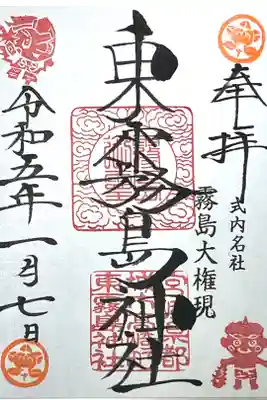 奉拝
式内名社
霧島大権現
東霧島神社
東霧島神社
令和五年一月七日